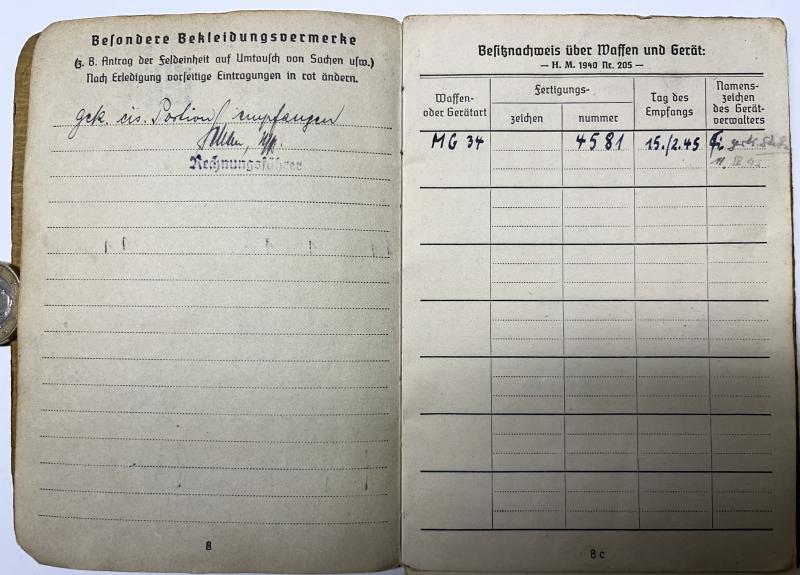 Besondere Bekleidungsvermerke
(z. B. Antrag der Feldeinheit auf Umtausch von Sachen usw.)
Nach Erledigung vorseitige Eintragungen in rot ändern.
gek. eis. Portion empfangen
Rechnungsführer
8
Besitznachweis über Waffen und Gerät:
— H. M. 1940 Nr. 205 —
Waffen- oder Gerätart
Fertigungs-
zeichen
nummer
Tag des Empfangs
Namens- zeichen des Gerät- verwalters
MG 34 4581 15./2.45
8 c